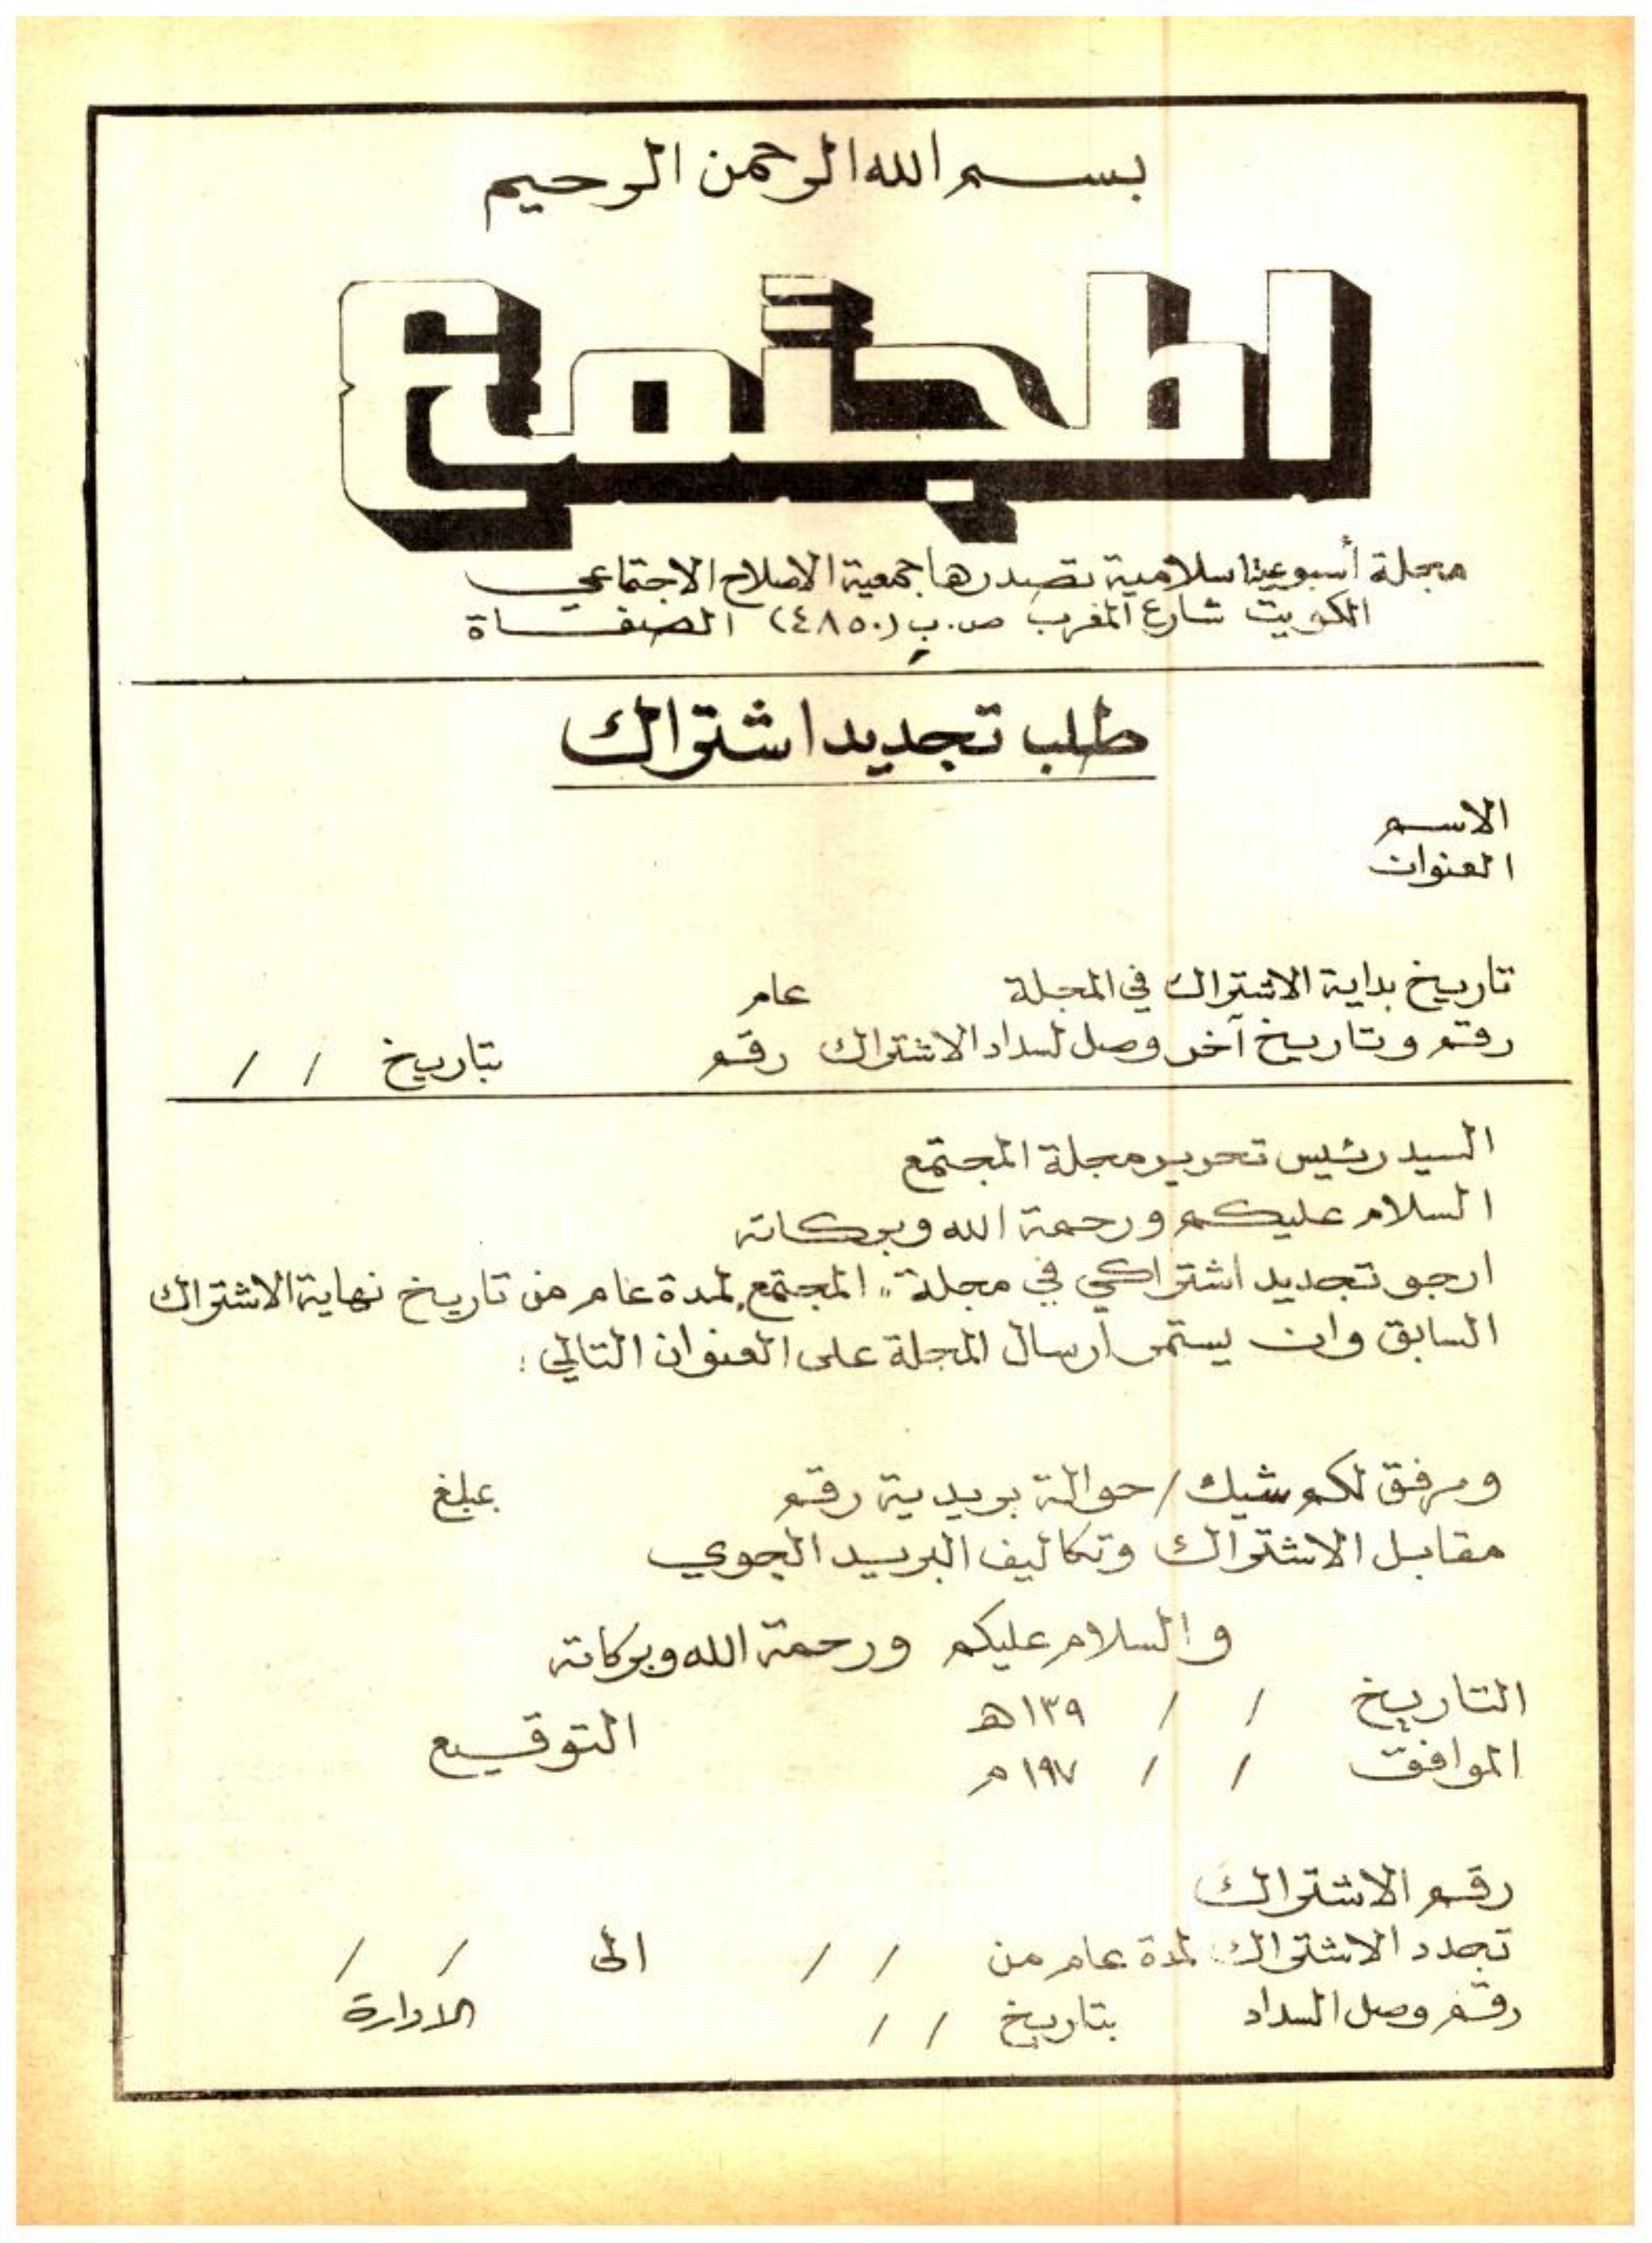 بسم الله الرحمن الرحيم
المجتمع
مجلة أسبوعية اسلامية تصدرها جمعية الاصلاح الاجتماعي
الكويت شارع المغرب ص.ب (٤٨٥٠) الصفاة
طلب تجديد اشتراك
الاسم
العنوان
تاريخ بداية الاشتراك في المجلة عام
رقم وتاريخ آخر وصل لسداد الاشتراك رقم بتاريخ / /
السيد رئيس تحرير مجلة المجتمع
السلام عليكم ورحمة الله وبركاته
ارجو تجديد اشتراكي في مجلة "المجتمع" لمدة عام من تاريخ نهاية الاشتراك
السابق وان يستمر ارسال المجلة على العنوان التالي :
ومرفق لكم شيك / حوالة بريدية رقم بمبلغ
مقابل الاشتراك وتكاليف البريد الجوي
والسلام عليكم ورحمة الله وبركاته
التاريخ / / ١٣٩ هـ
الموافق / / ١٩٧ م
التوقيع
رقم الاشتراك
تجدد الاشتراك لمدة عام من / / الى / /
رقم وصل السداد بتاريخ / / الادارة